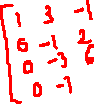 1 3 -1
0 -1 2
0 -3 6
0 -1